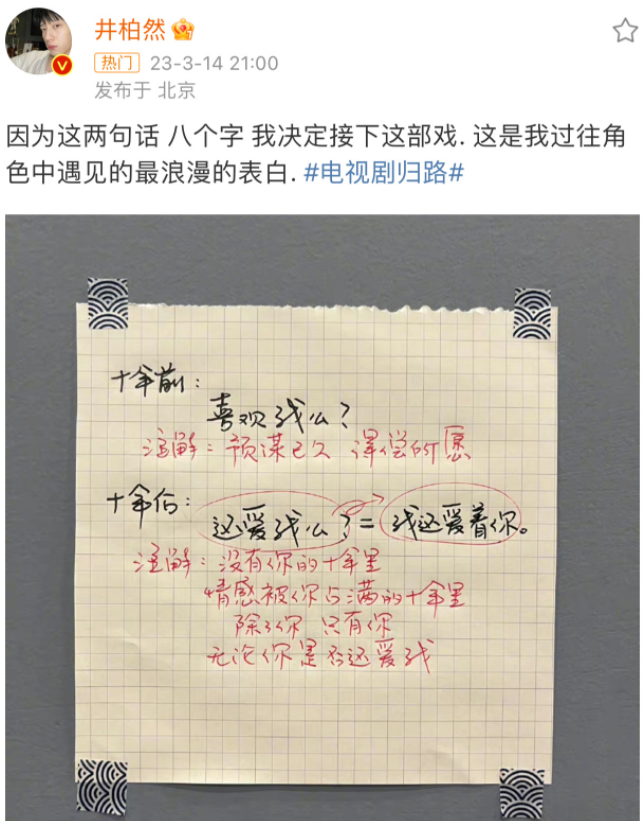 井柏然
热门 23-3-14 21:00
发布于 北京
因为这两句话 八个字 我决定接下这部戏. 这是我过往角
色中遇见的最浪漫的表白. #电视剧归路#
十年前:
喜欢我么?
注解: 预谋已久 得偿所愿
十年后:
还爱我么? = 我还爱着你。
注解: 没有你的十年里
情感被你占满的十年里
除了你 只有你
无论你是否还爱我